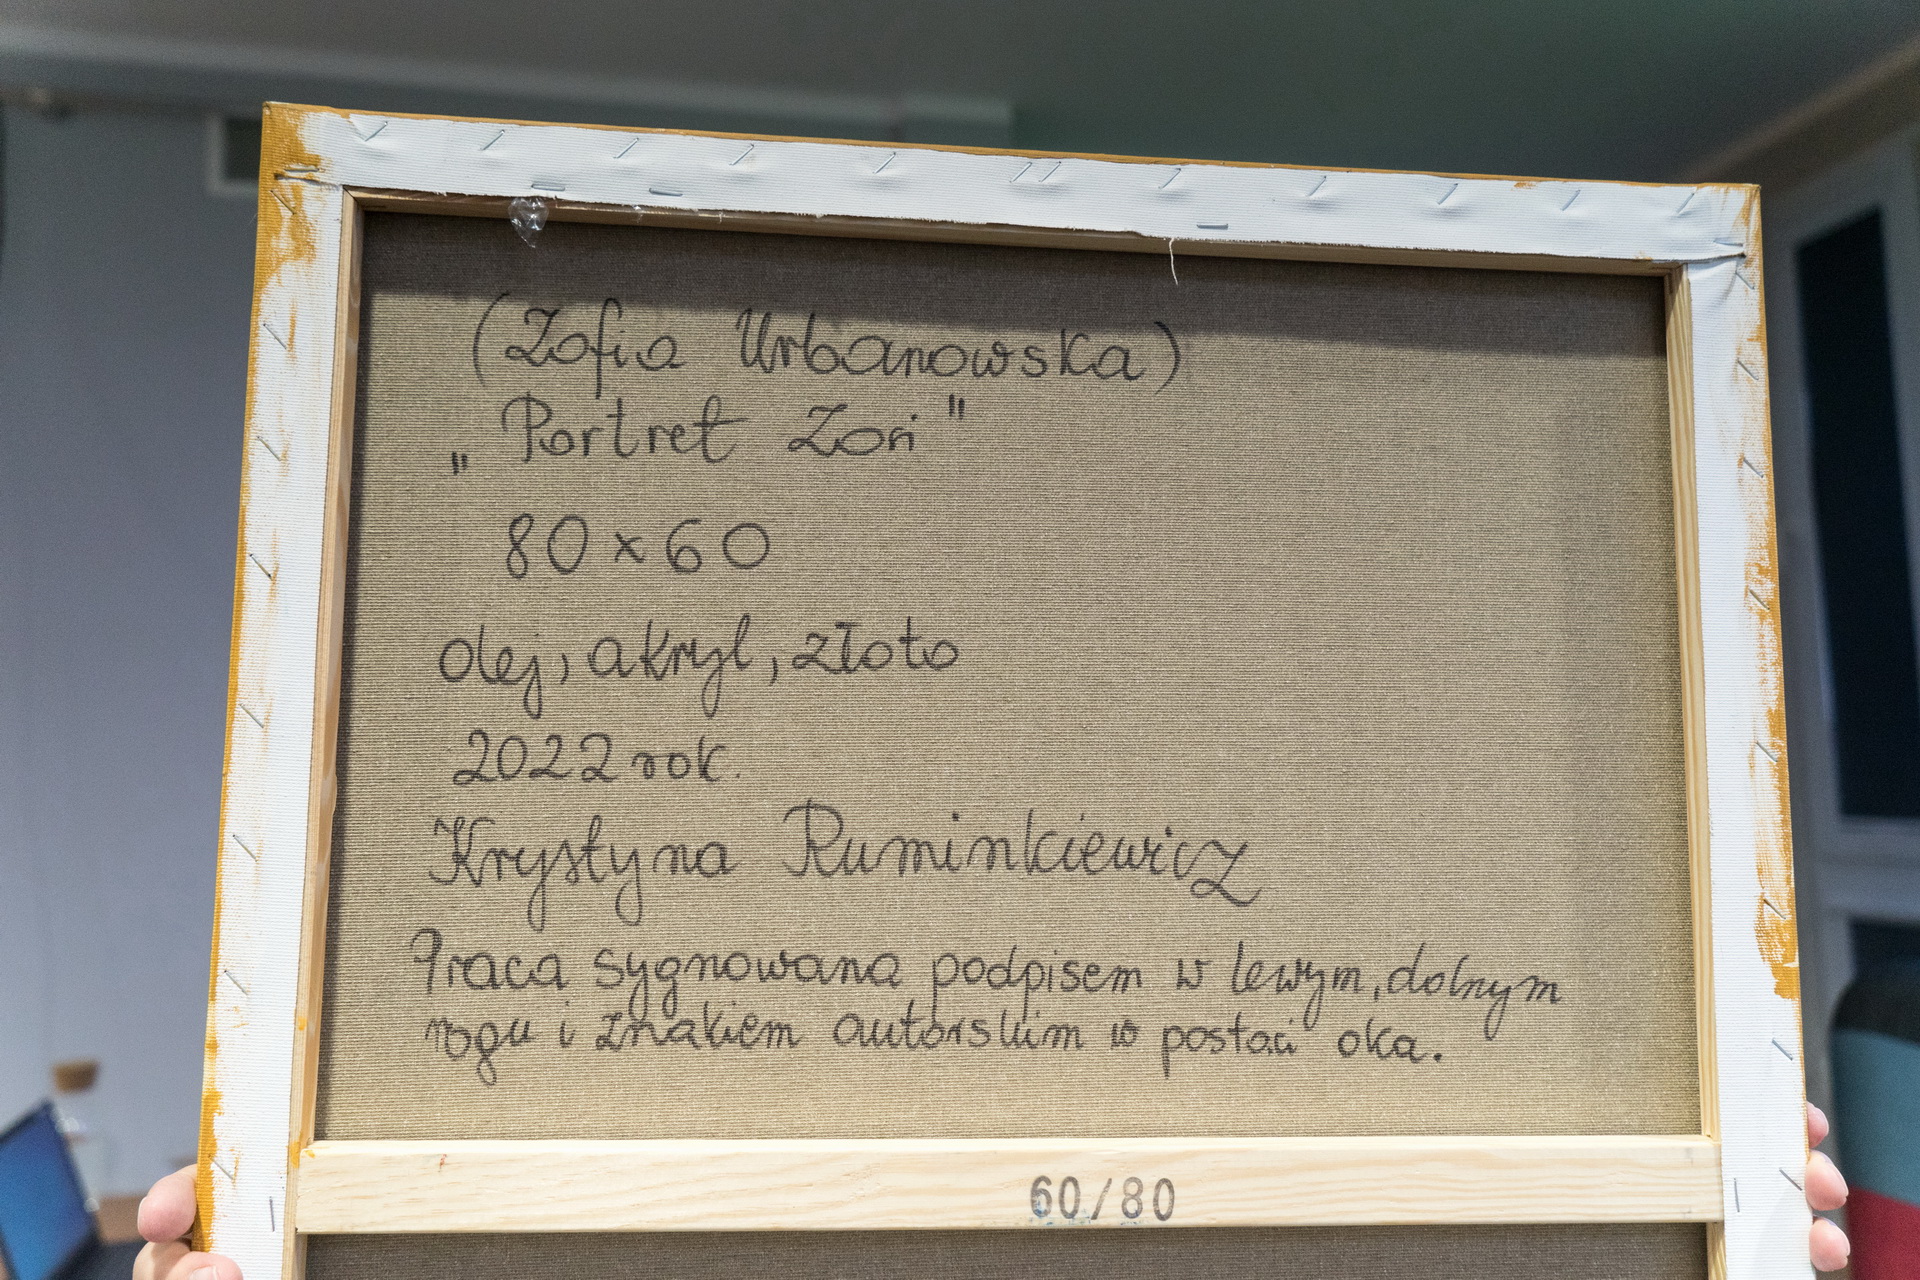 (Zofia Urbanowska)
„Portret Zosi"
80 x 60
olej, akryl, złoto
2022 rok.
Krystyna Ruminkiewicz
Praca sygnowana podpisem w lewym, dolnym
rogu i znakiem autorskim w postaci oka.
60/80